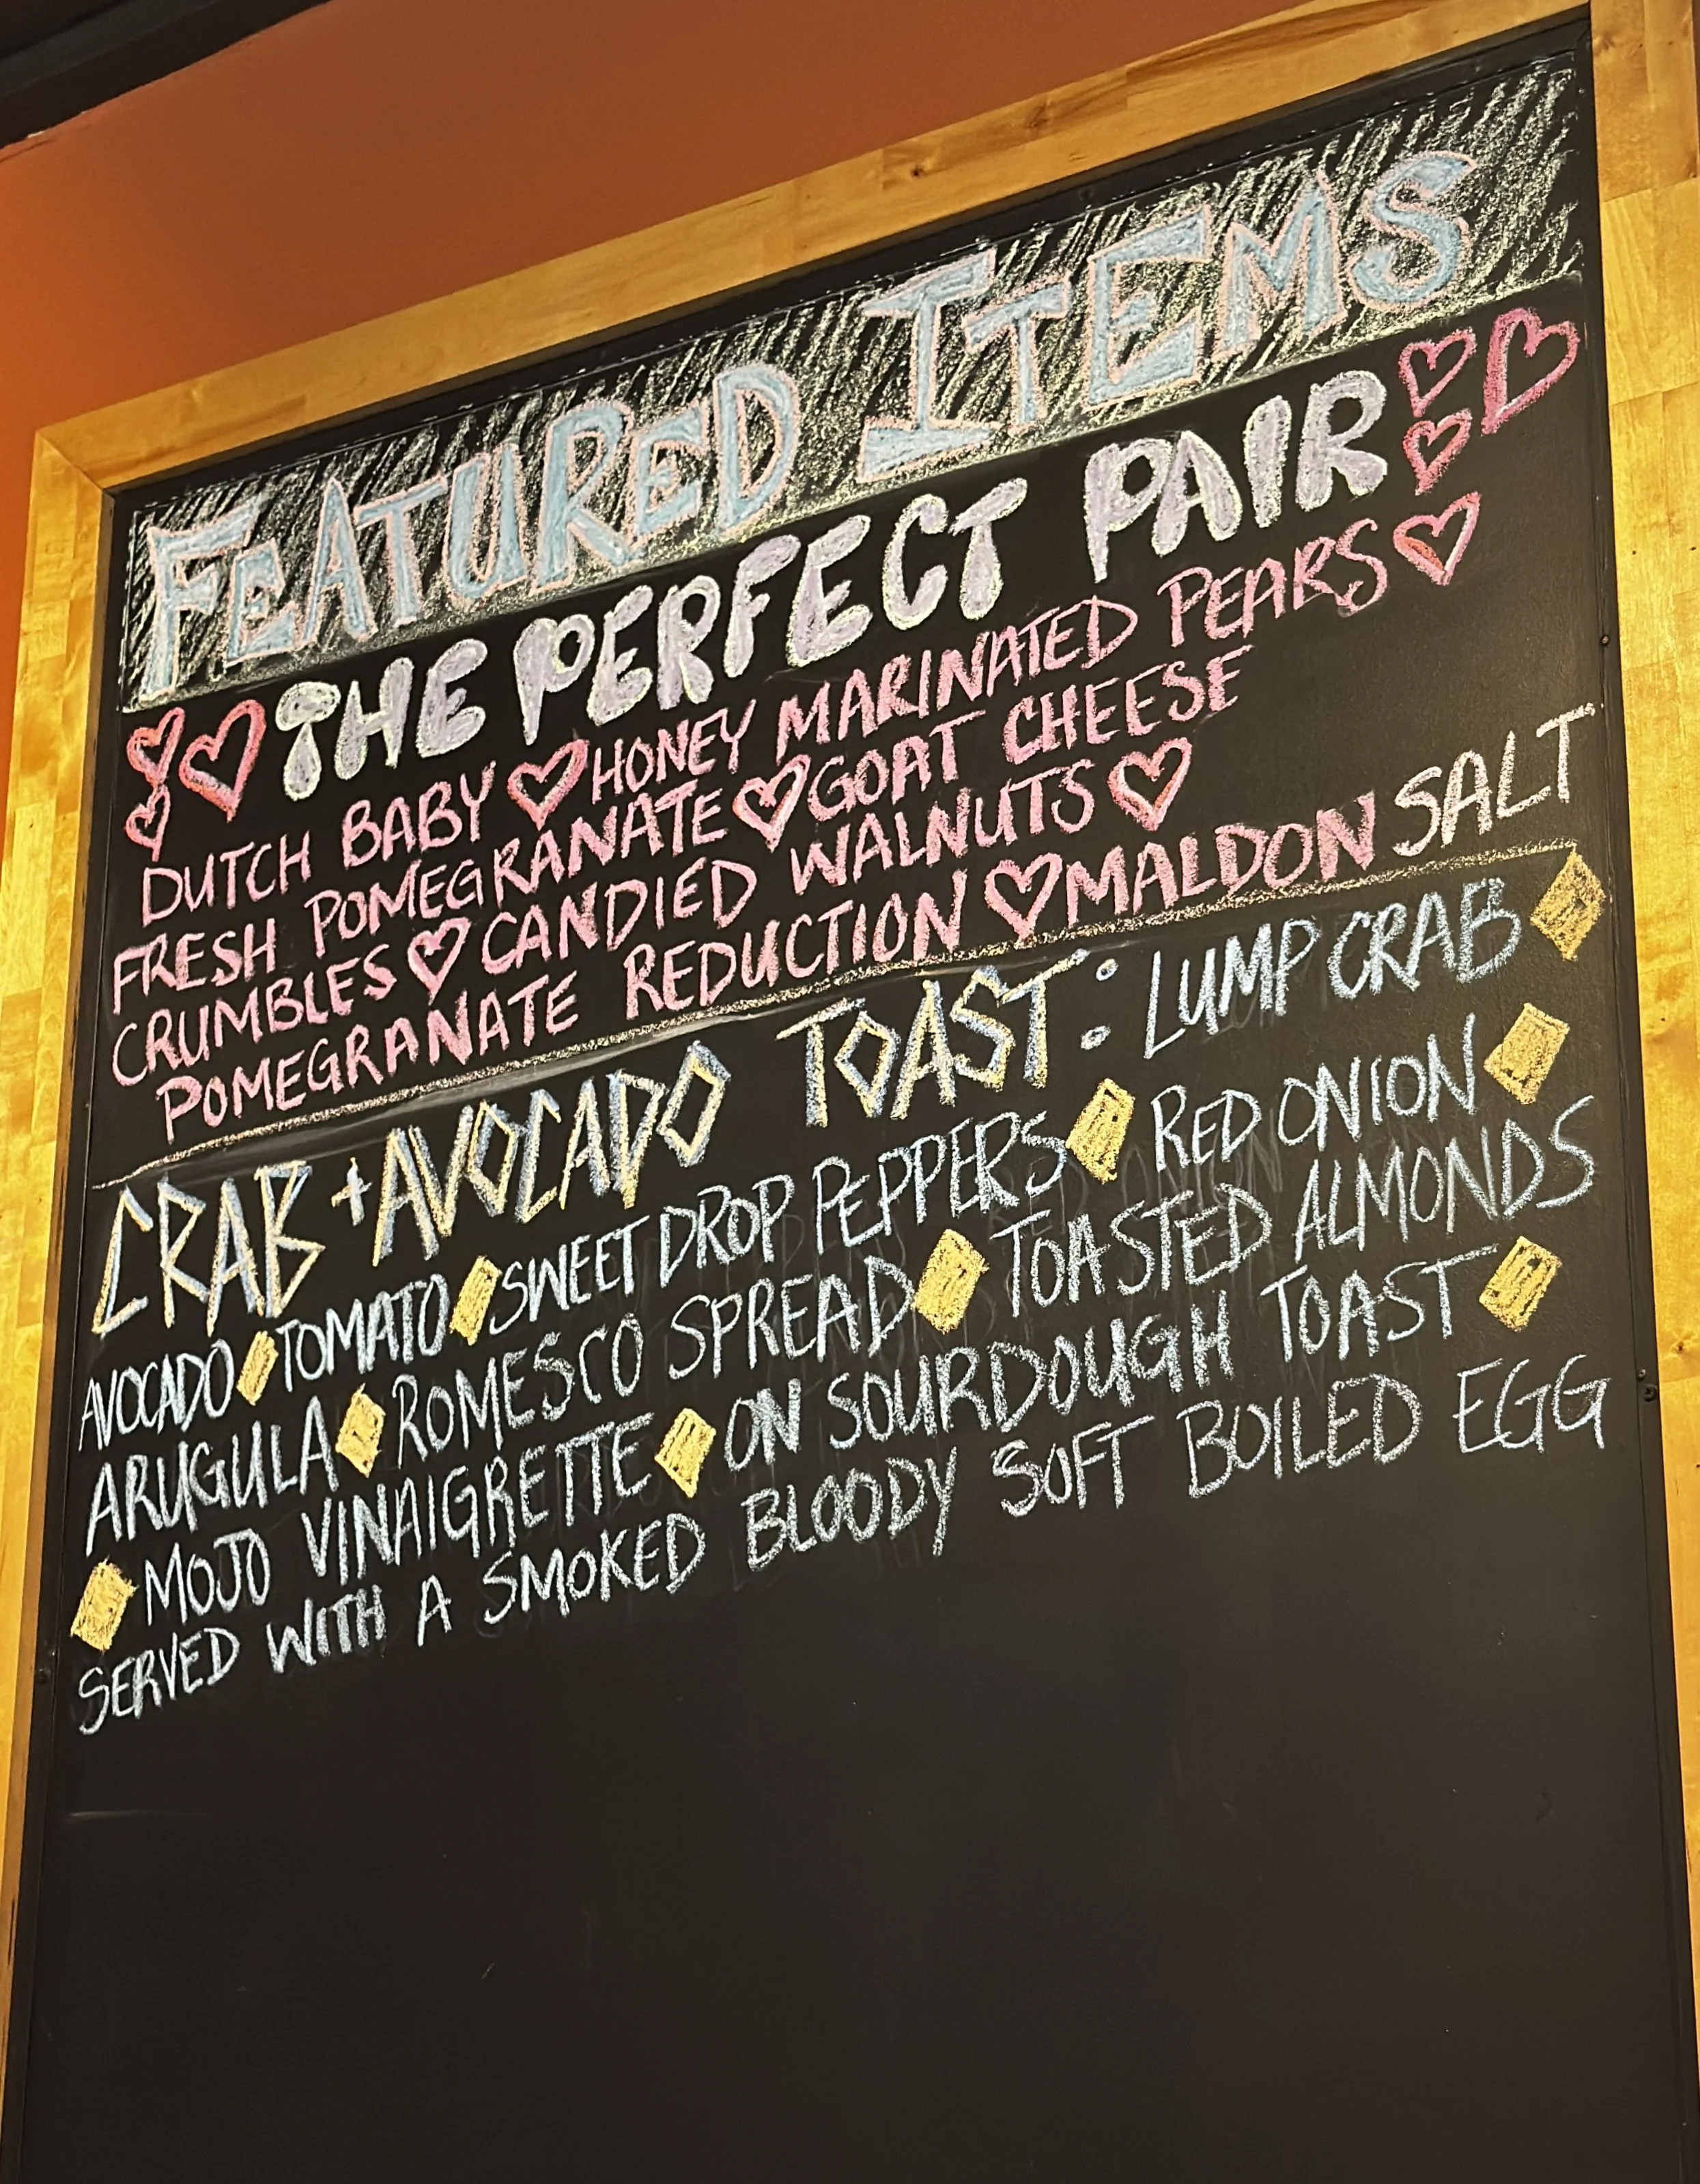 FEATURED ITEMS
THE PERFECT PAIR
DUTCH BABY ♡ HONEY MARINATED PEARS ♡
FRESH POMEGRANATE ♡ GOAT CHEESE
CRUMBLES ♡ CANDIED WALNUTS ♡
POMEGRANATE REDUCTION ♡ MALDON SALT
CRAB + AVOCADO TOAST: LUMP CRAB
AVOCADO TOMATO SWEET DROP PEPPERS RED ONION
ARUGULA ROMESCO SPREAD TOASTED ALMONDS
MOJO VINAIGRETTE ON SOURDOUGH TOAST
SERVED WITH A SMOKED BLOODY SOFT BOILED EGG